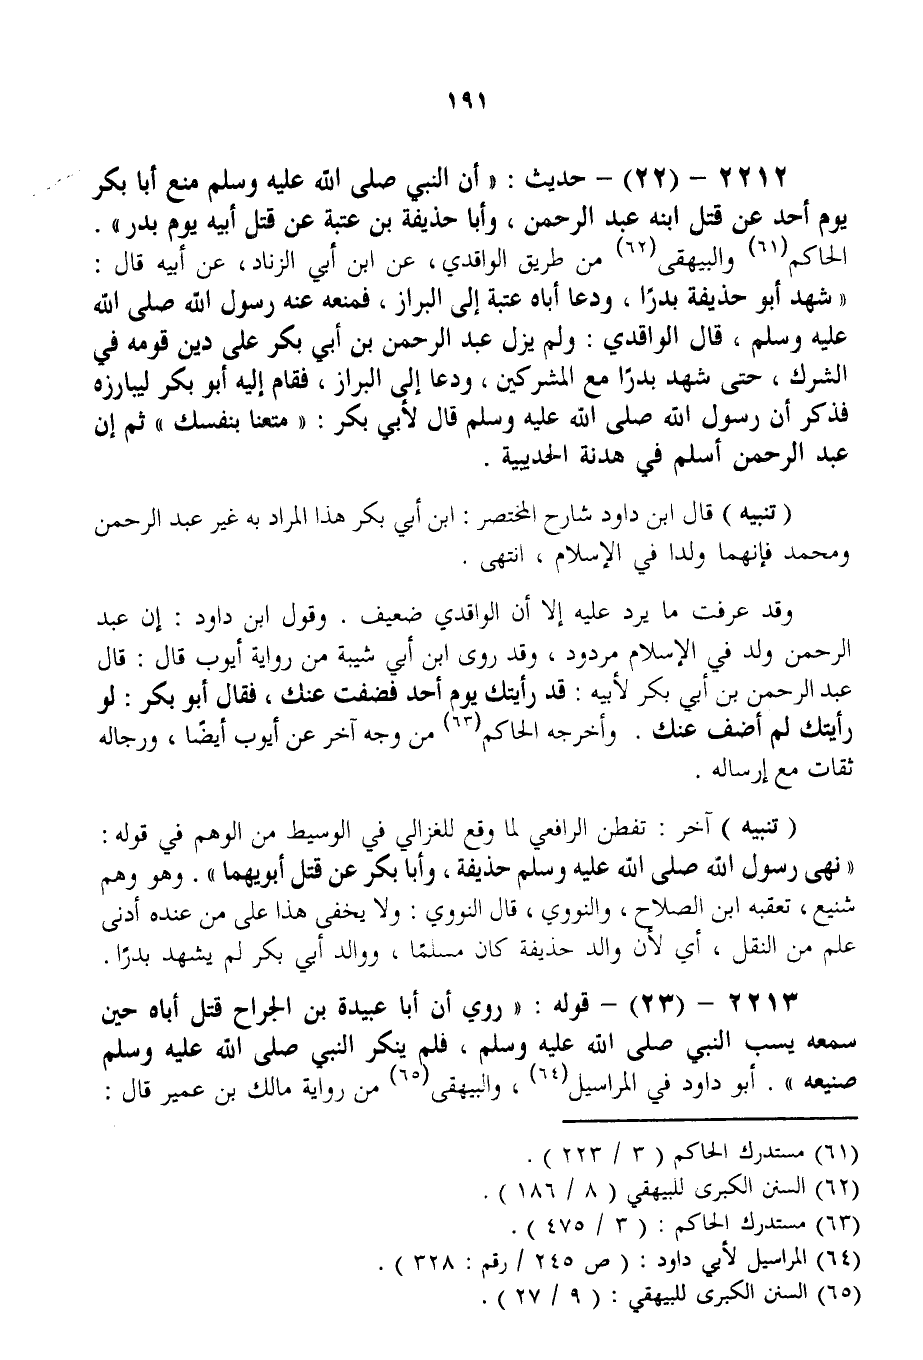 ١٩١
٢٢١٢ – (٢٢) – حديث : « أن النبي صلى الله عليه وسلم منع أبا بكر
يوم أحد عن قتل ابنه عبد الرحمن ، وأبا حذيفة بن عتبة عن قتل أبيه يوم بدر » .
الحاكم(٦١) والبيهقى(٦٢) من طريق الواقدي ، عن ابن أبي الزناد ، عن أبيه قال :
« شهد أبو حذيفة بدرًا ، ودعا أباه عتبة إلى البراز ، فمنعه عنه رسول الله صلى الله
عليه وسلم ، قال الواقدي : ولم يزل عبد الرحمن بن أبي بكر على دين قومه في
الشرك ، حتى شهد بدرًا مع المشركين ، ودعا إلى البراز ، فقام إليه أبو بكر ليبارزه
فذكر أن رسول الله صلى الله عليه وسلم قال لأبي بكر : « متعنا بنفسك » ثم إن
عبد الرحمن أسلم في هدنة الحديبية .
( تنبيه ) قال ابن داود شارح المختصر : ابن أبي بكر هذا المراد به غير عبد الرحمن
ومحمد فإنهما ولدا في الإسلام ، انتهى .
وقد عرفت ما يرد عليه إلا أن الواقدي ضعيف . وقول ابن داود : إن عبد
الرحمن ولد في الإسلام مردود ، وقد روى ابن أبي شيبة من رواية أيوب قال : قال
عبد الرحمن بن أبي بكر لأبيه : قد رأيتك يوم أحد فضفت عنك ، فقال أبو بكر : لو
رأيتك لم أضف عنك . وأخرجه الحاكم(٦٣) من وجه آخر عن أيوب أيضًا ، ورجاله
ثقات مع إرساله .
( تنبيه ) آخر : تفطن الرافعي لما وقع للغزالي في الوسيط من الوهم في قوله :
« نهى رسول الله صلى الله عليه وسلم حذيفة ، وأبا بكر عن قتل أبويهما » . وهو وهم
شنيع ، تعقبه ابن الصلاح ، والنووي ، قال النووي : ولا يخفى هذا على من عنده أدنى
علم من النقل ، أي لأن والد حذيفة كان مسلمًا ، ووالد أبي بكر لم يشهد بدرًا .
٢٢١٣ – (٢٣) – قوله : « روي أن أبا عبيدة بن الجراح قتل أباه حين
سمعه يسب النبي صلى الله عليه وسلم ، فلم ينكر النبي صلى الله عليه وسلم
صنيعه » . أبو داود في المراسيل(٦٤) ، والبيهقى(٦٥) من رواية مالك بن عمير قال :
(٦١) مستدرك الحاكم ( ٣ / ٢٢٣ ) .
(٦٢) السنن الكبرى للبيهقي ( ٨ / ١٨٦ ) .
(٦٣) مستدرك الحاكم : ( ٣ / ٤٧٥ ) .
(٦٤) المراسيل لأبي داود : ( ص ٢٤٥ / رقم : ٣٢٨ ) .
(٦٥) السنن الكبرى للبيهقي : ( ٩ / ٢٧ ) .